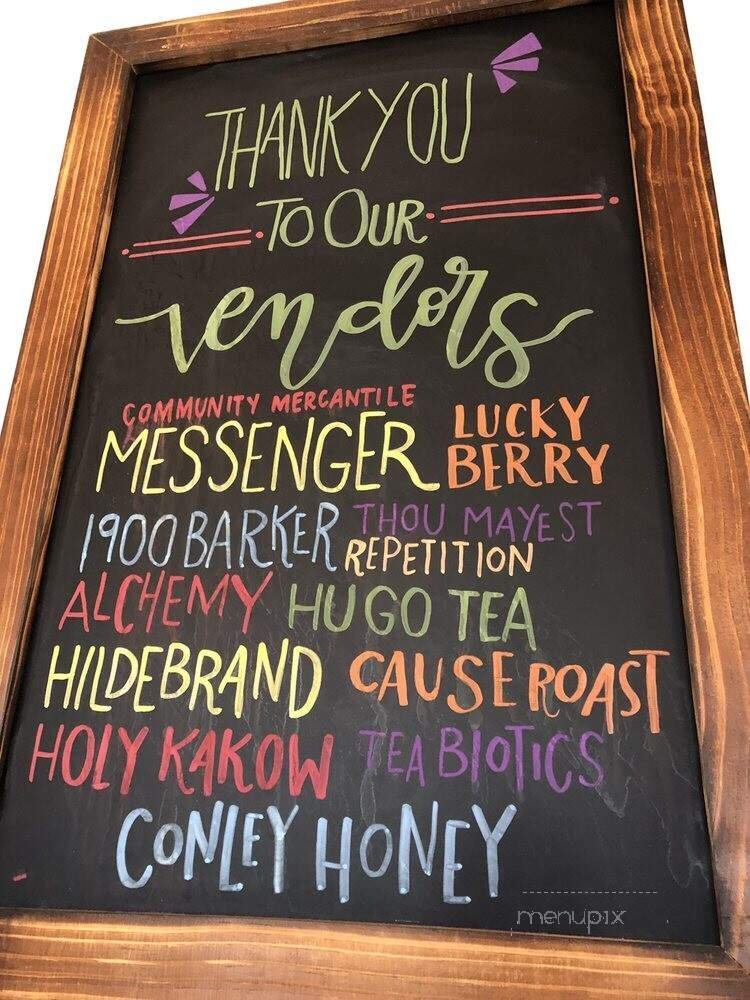 THANK YOU
TO OUR
vendors
COMMUNITY MERCANTILE
MESSENGER
LUCKY
BERRY
1900 BARKER
THOU MAYEST
REPETITION
ALCHEMY
HUGO TEA
HILDEBRAND
CAUSE ROAST
HOLY KAKOW
TEA BIOTICS
CONLEY HONEY
menupix